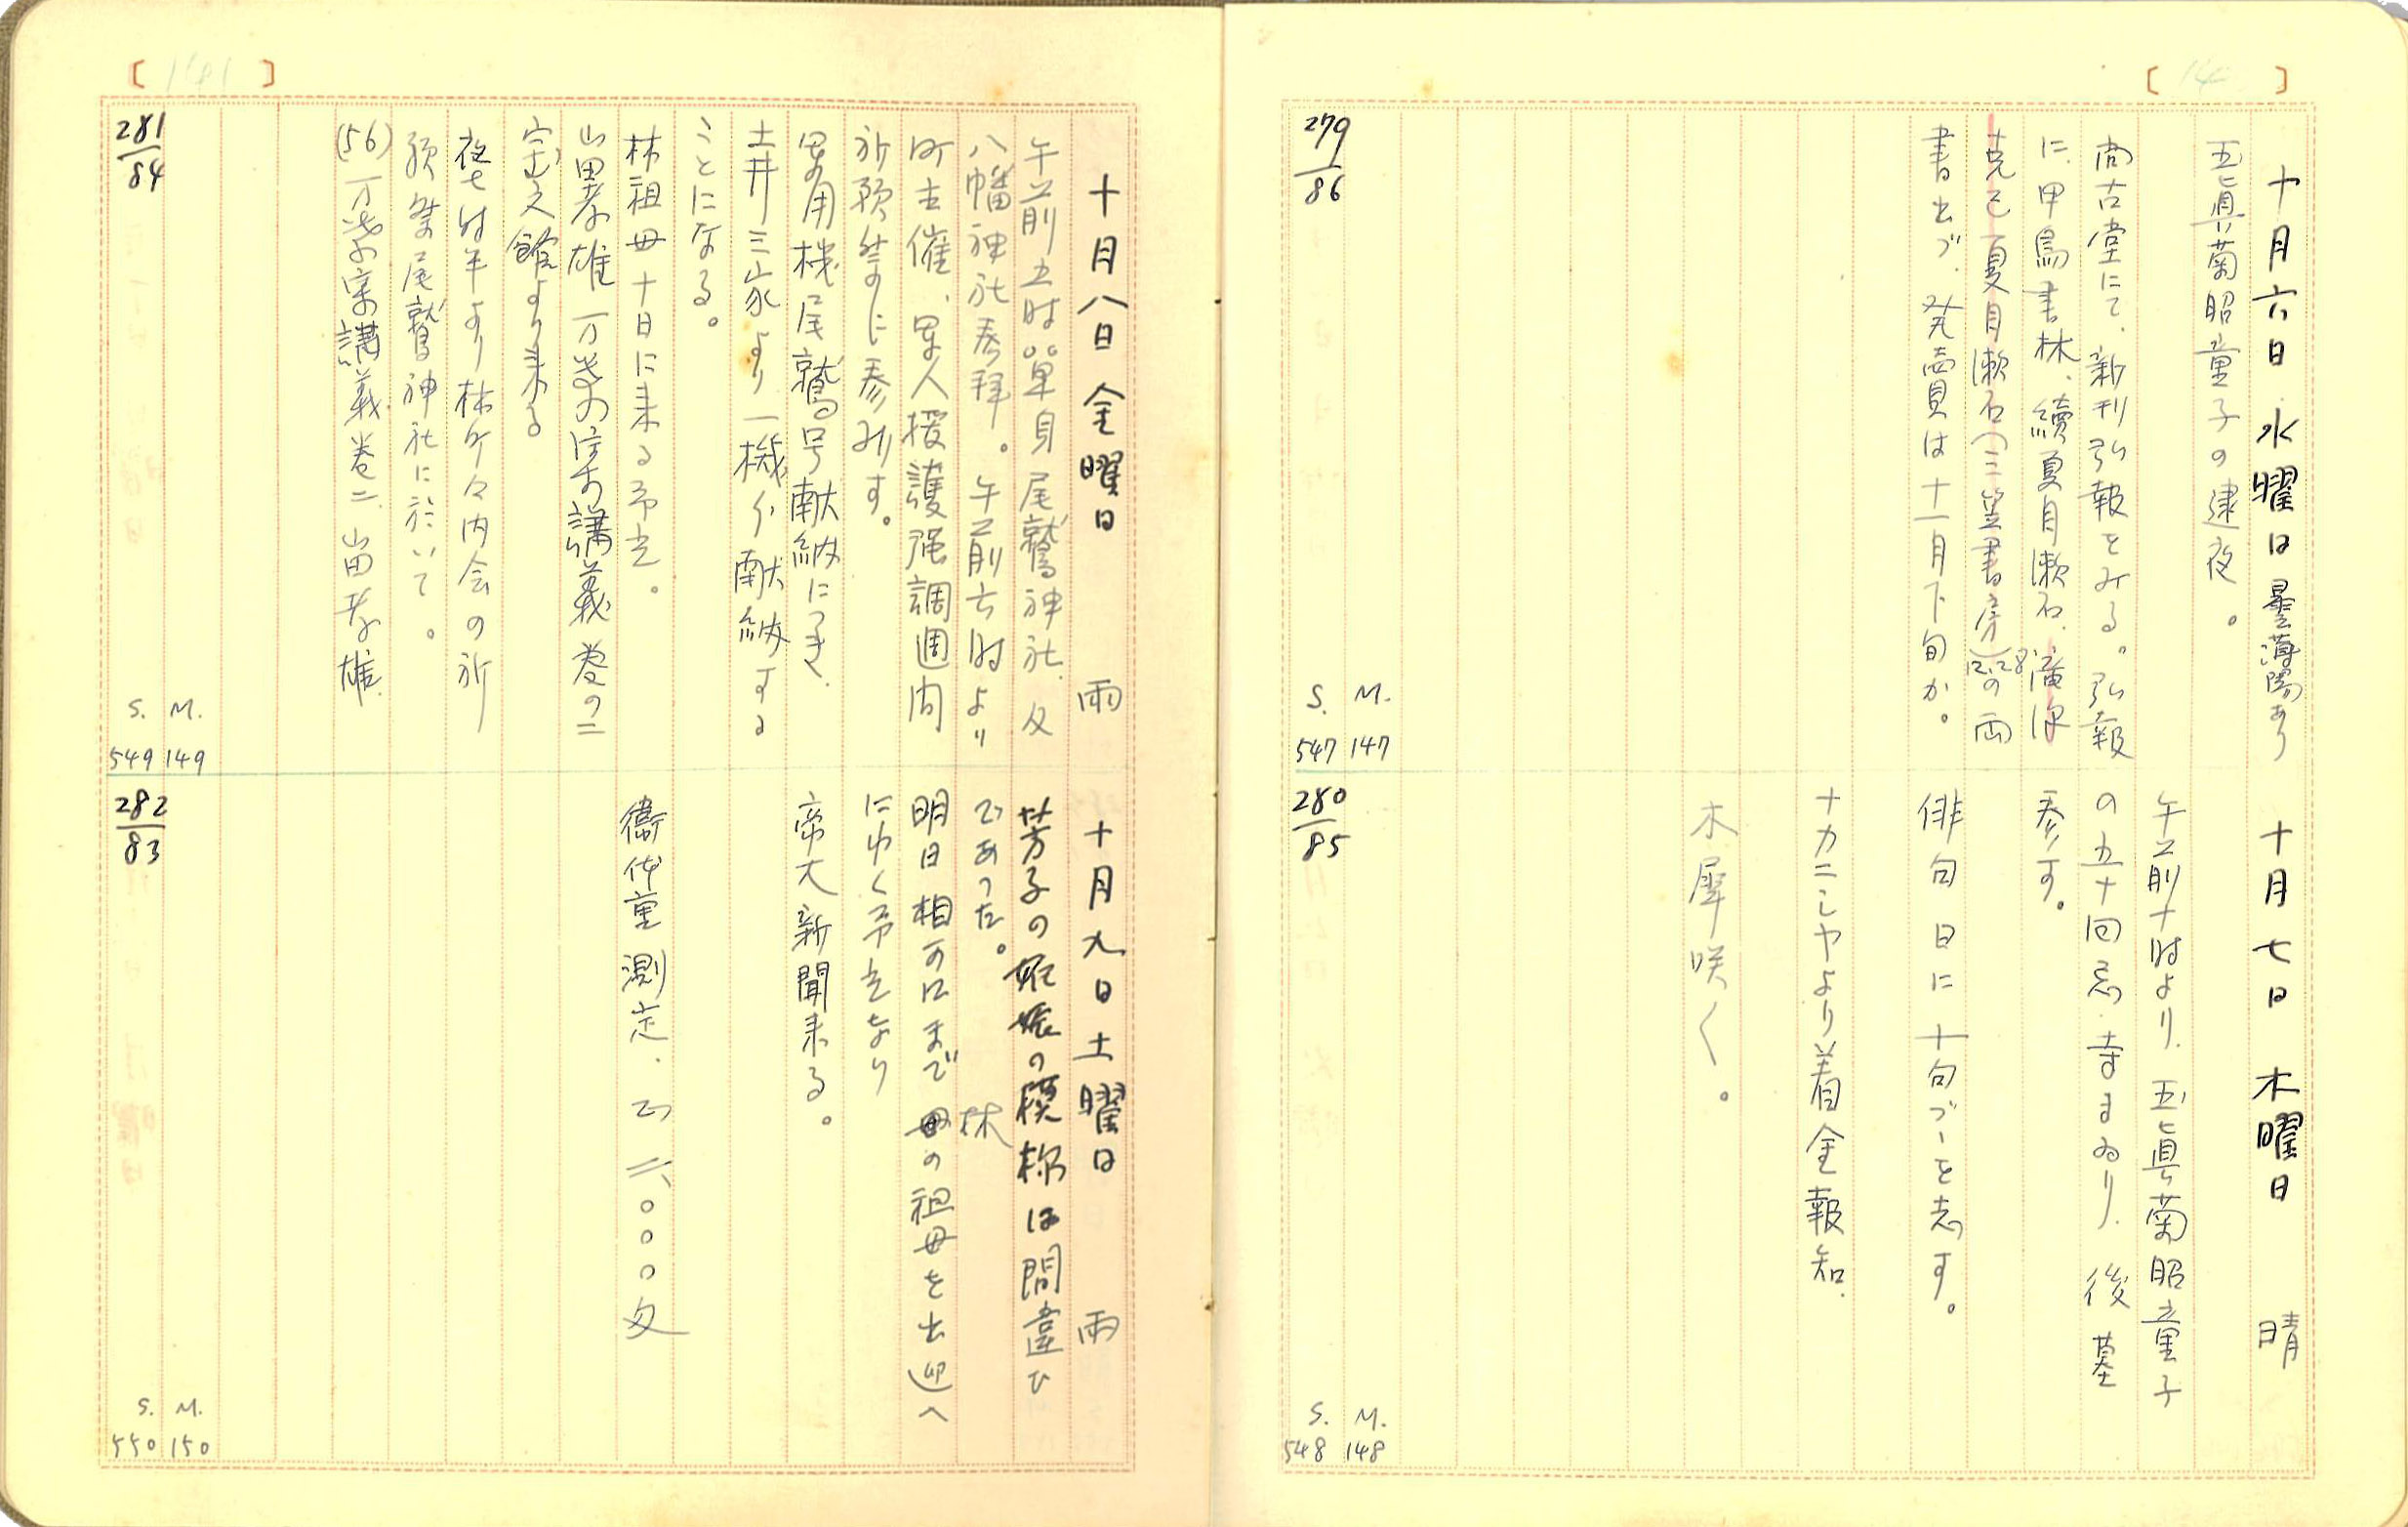 十月六日 水曜日 曇薄陽あり
玉眞菊昭童子の逮夜。
尚古堂にて、新刊弘報をみる。弘報
に、甲鳥書林、續夏目漱石、瀧沢
克己 夏目漱石(三笠書房)の両
12.28
書出づ、発売は十一月下旬か。
279/86
S. M.
547 147
十月七日 木曜日 晴
午前十時より、玉眞菊昭童子
の五十回忌、寺まゐり、後墓
参す。
俳句 日に十句づゝを志す。
ナカニシヤより着金報知。
木犀咲く。
280/85
S. M.
548 148
十月八日 金曜日 雨
午前五時單身尾鷲神社、及
八幡神社参拜。午前七時より
町主催、軍人援護强調週間
祈願祭に参列す。
軍用機尾鷲号献納につき、
土井三家より一機分献納する
ことになる。
林祖母十日に来る予定。
山田孝雄 万葉の 講義 巻の二
宝文館より来る
夜七時半より林町々内会の祈
願祭尾鷲神社に於いて。
(56) 万葉集講義 巻二 山田孝雄
281/84
S. M.
549 149
十月九日 土曜日 雨
芳子の妊娠の模様は間違ひ
であった。
林
明日相可口まで 母の祖母を出迎へ
にゆく予定なり
帝大新聞来る。
衞 体重測定、 二、〇〇〇匁
282/83
S. M.
550 150